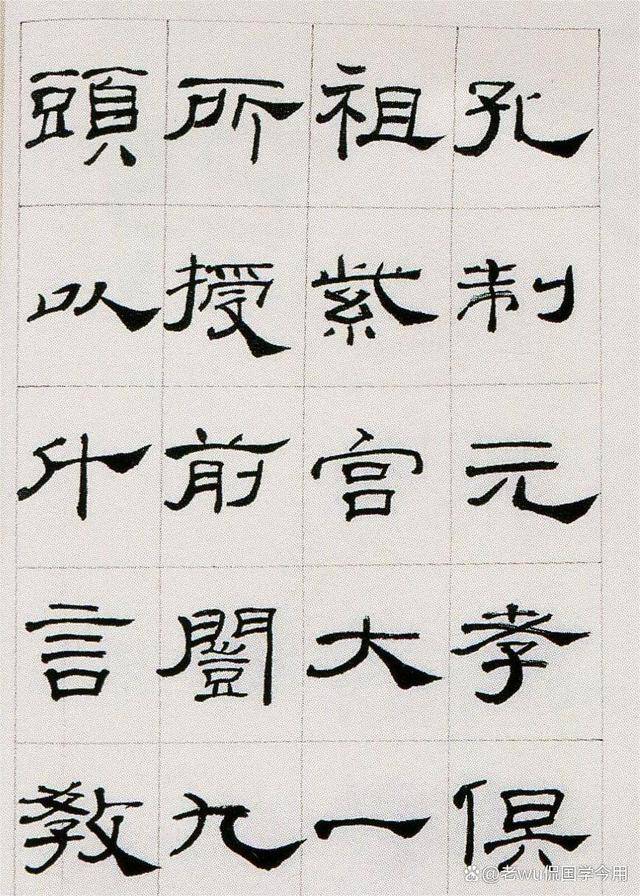 孔制元孝俱
祖紫宮大一
所授前闓九
頭以什言教
老wu侃国学今用